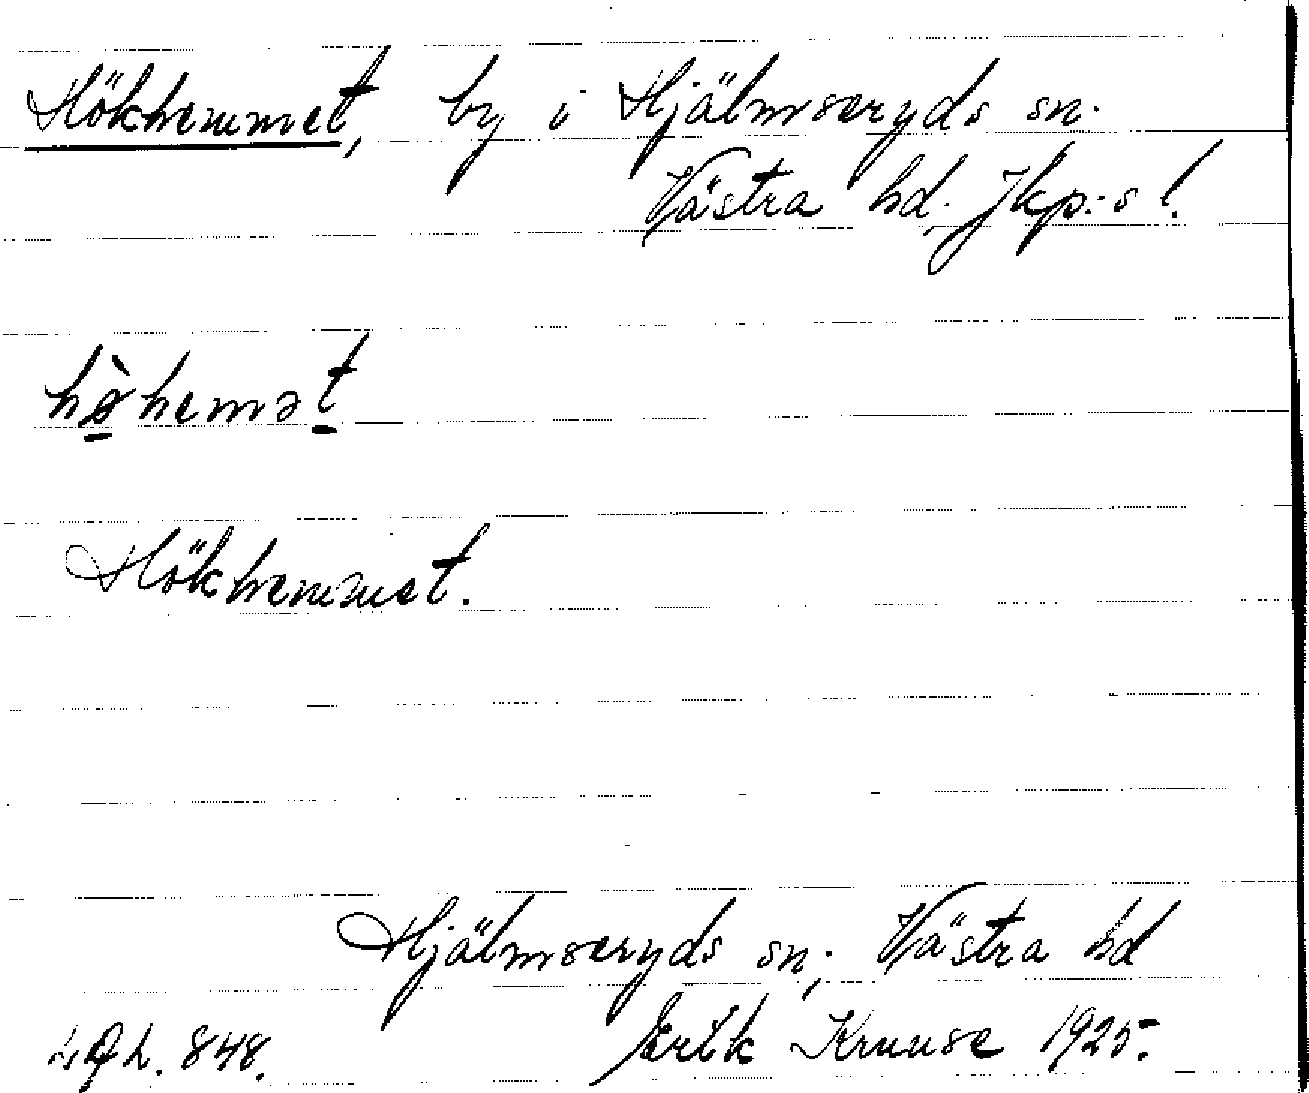 Hökhemmet, by i Hjälmseryds sn.
Västra hd. Jkp:s l.
hø̀hemət
Hökhemmet.
Hjälmseryds sn; Västra hd
848. Erik Kruuse 1925.